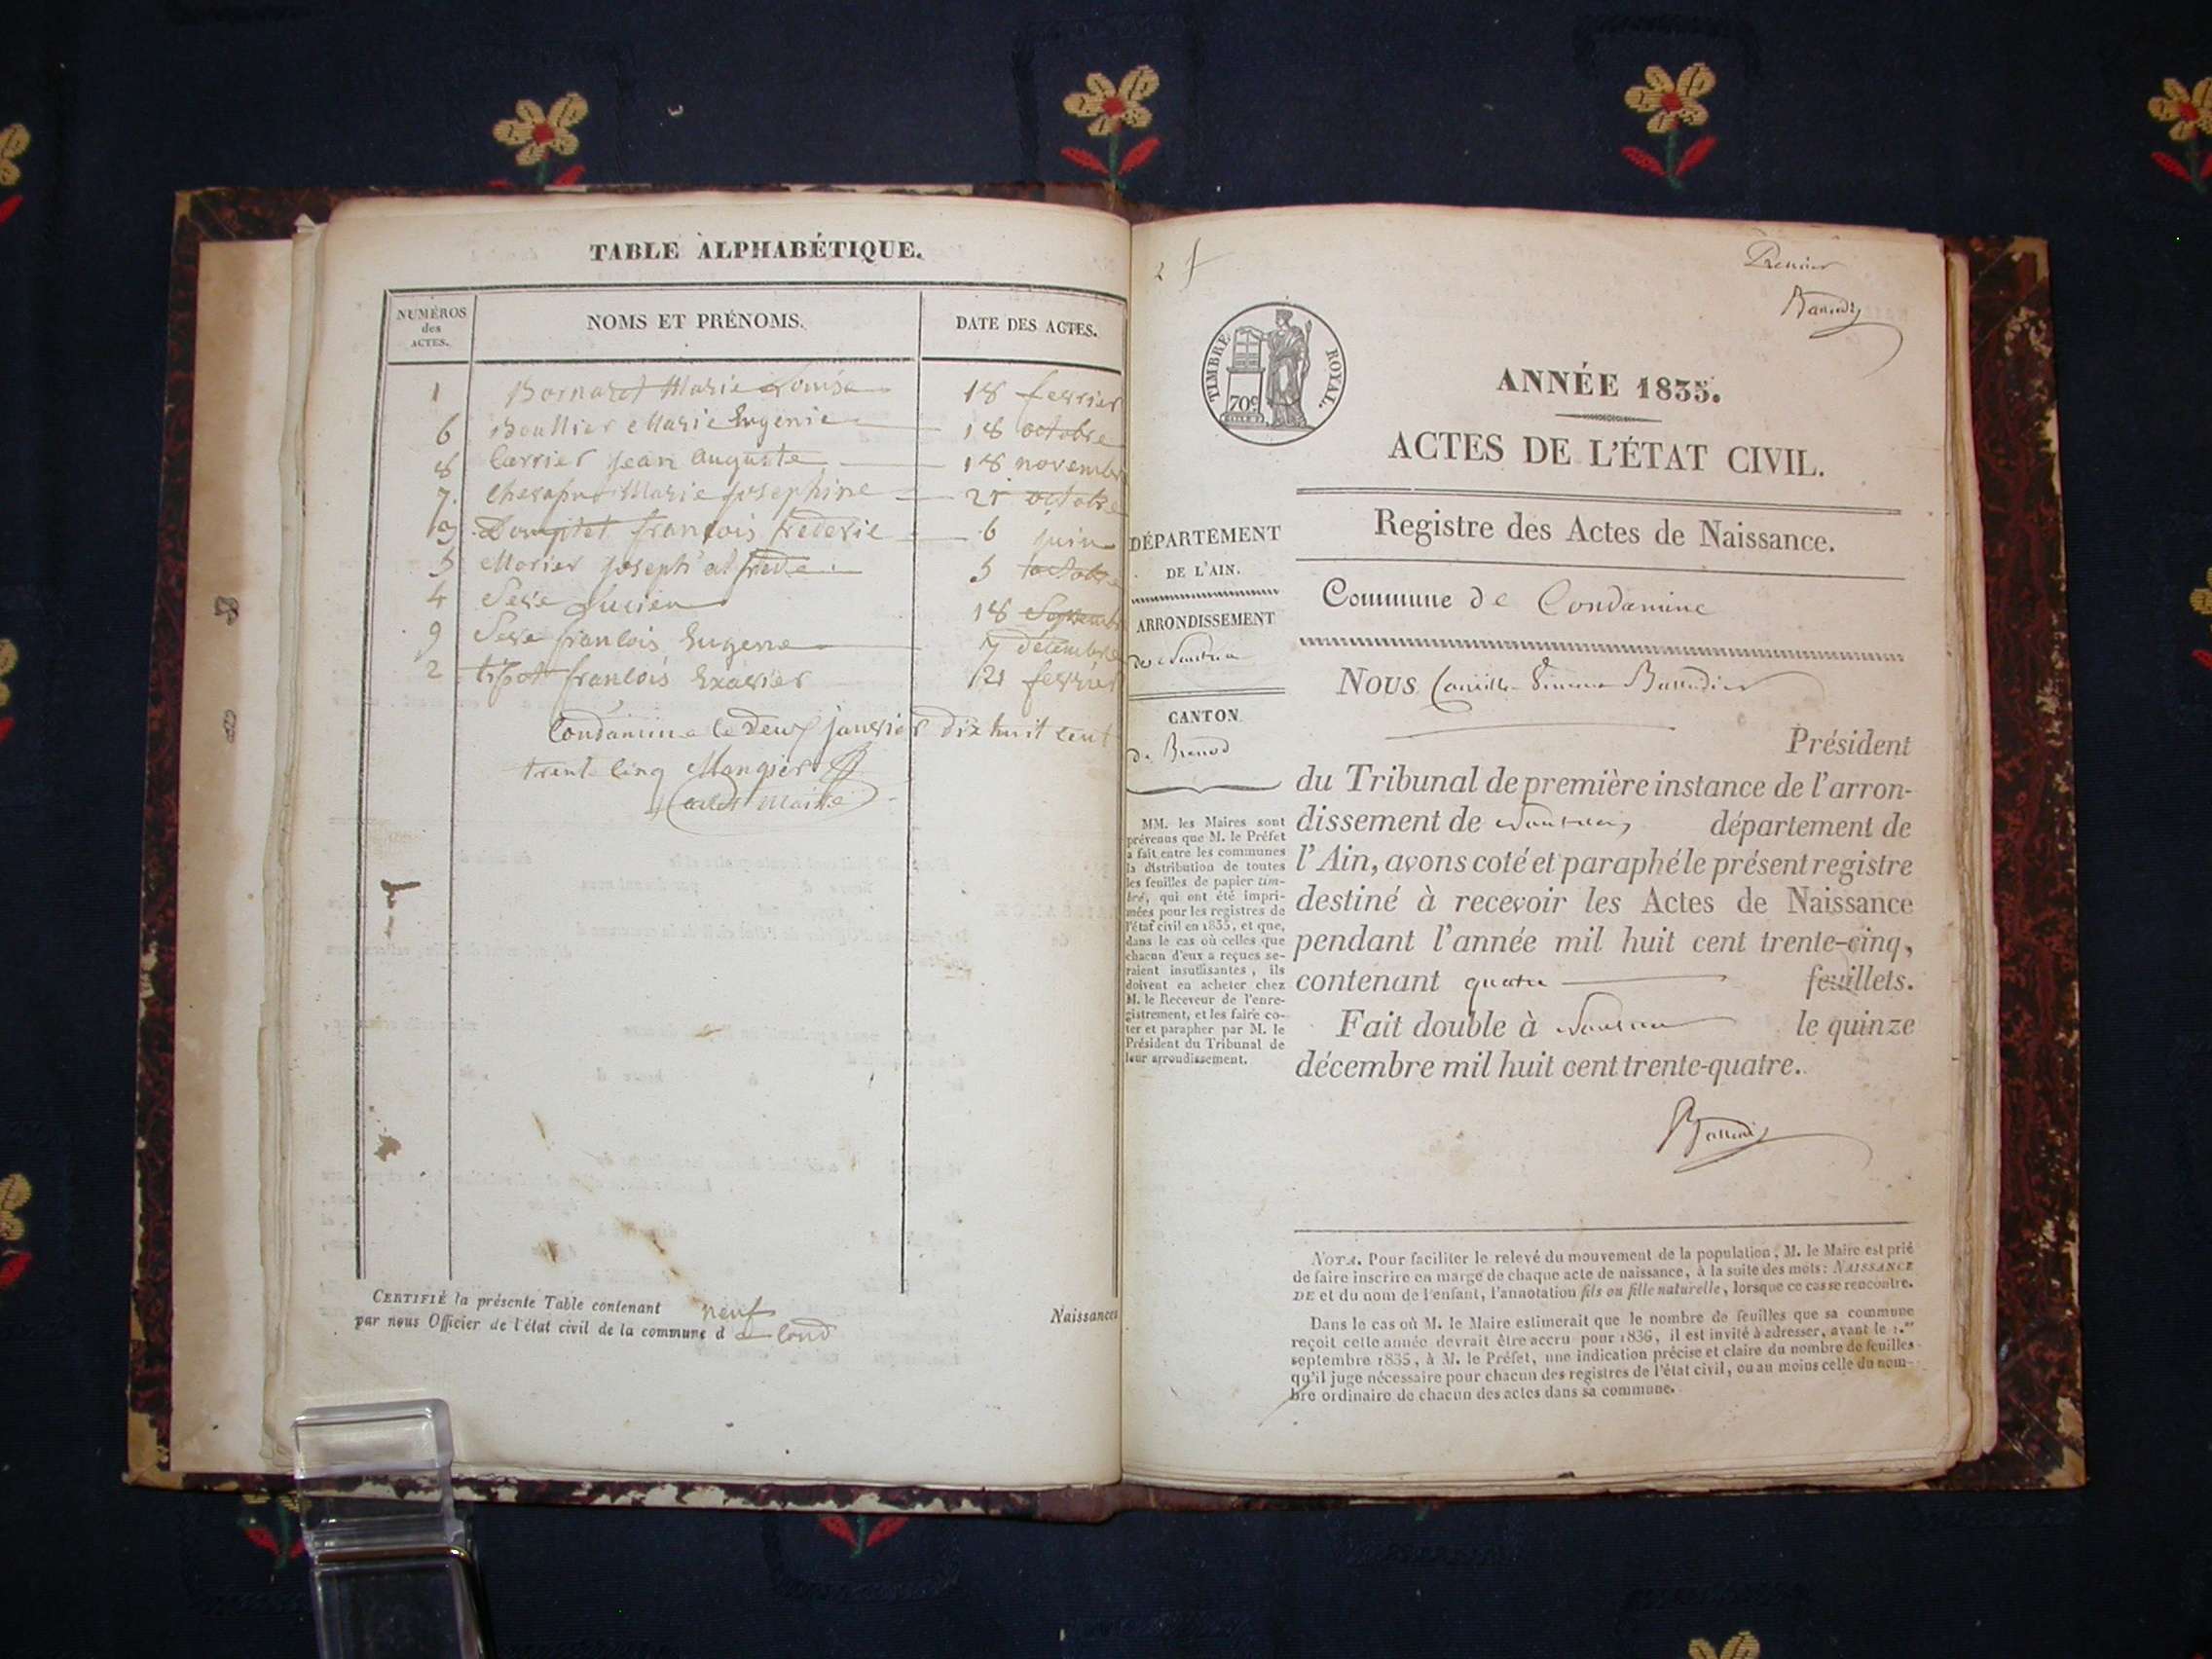 TABLE ALPHABÉTIQUE.
NUMÉROS
des
ACTES.
NOMS ET PRÉNOMS.
DATE DES ACTES.
1 Marie Louise 18 fevrier
6 Boullier Marie Eugenie 18 octobre
8 Carrier jean auguste 18 novembr
7. Marie josephine octobre
françois frederic 6 juin
5 joseph alfrede 5 octobre
4 Seve Lucien 18
9 Seve francois Eugene 7 décembre
2 tissot francois Exavier 21 fevrier
Condamine le deux janvier dix huit cent
trent cinq
CERTIFIÉ la présente Table contenant neuf Naissances
par nous Officier de l'état civil de la commune d Cond
2
Premier
TIMBRE ROYAL.
70c
ANNÉE 1835.
ACTES DE L'ÉTAT CIVIL.
Registre des Actes de Naissance.
DÉPARTEMENT
DE L'AIN.
ARRONDISSEMENT
de Nantua
CANTON
de Brenod
MM. les Maires sont
prévenus que M. le Préfet
a fait entre les communes
la distribution de toutes
les feuilles de papier tim-
bré, qui ont été impri-
mées pour les registres de
l'état civil en 1835, et que,
dans le cas où celles que
chacun d'eux a reçues se-
raient insuffisantes, ils
doivent en acheter chez
M. le Receveur de l'enre-
gistrement, et les faire co-
ter et parapher par M. le
Président du Tribunal de
leur arrondissement.
Commune de Condamine
Nous
Président
du Tribunal de première instance de l'arron-
dissement de Nantua, département de
l'Ain, avons coté et paraphé le présent registre
destiné à recevoir les Actes de Naissance
pendant l'année mil huit cent trente-cinq,
contenant quatre feuillets.
Fait double à Nantua le quinze
décembre mil huit cent trente-quatre.
NOTA. Pour faciliter le relevé du mouvement de la population, M. le Maire est prié
de faire inscrire en marge de chaque acte de naissance, à la suite des mots: NAISSANCE
DE et du nom de l'enfant, l'annotation fils ou fille naturelle, lorsque ce cas se rencontre.
Dans le cas où M. le Maire estimerait que le nombre de feuilles que sa commune
reçoit cette année devrait être accru pour 1836, il est invité à adresser, avant le 1.er
septembre 1835, à M. le Préfet, une indication précise et claire du nombre de feuilles
qu'il juge nécessaire pour chacun des registres de l'état civil, ou au moins celle du nom-
bre ordinaire de chacun des actes dans sa commune.